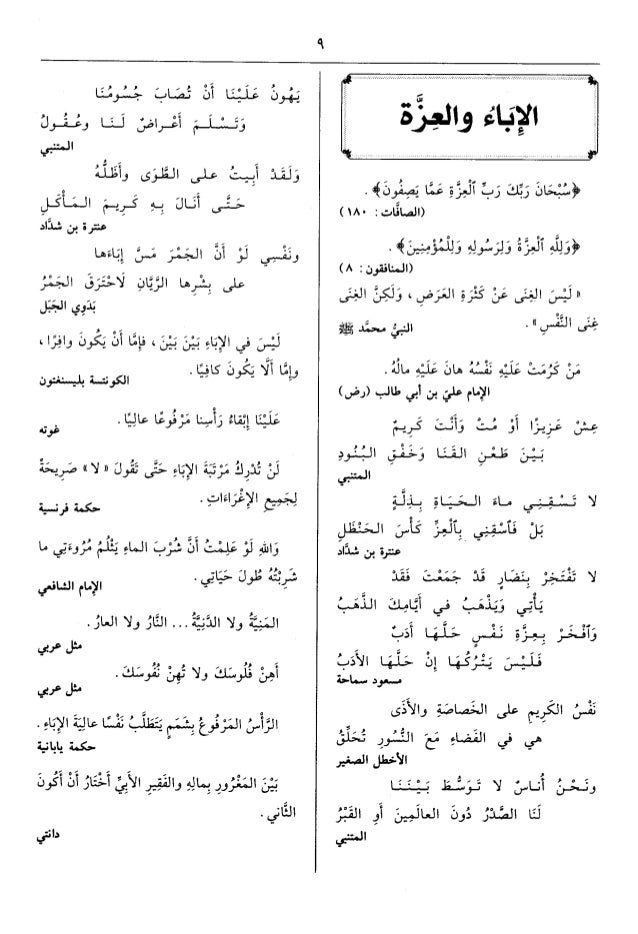 ٩
الإِبَاءُ والعِزَّة
﴿سُبْحَانَ رَبِّكَ رَبِّ ٱلْعِزَّةِ عَمَّا يَصِفُونَ﴾ .
(الصافَّات : ١٨٠)
﴿وَلِلَّهِ ٱلْعِزَّةُ وَلِرَسُولِهِ وَلِلْمُؤْمِنِينَ﴾ .
(المنافقون : ٨)
« لَيْسَ الغِنَى عَنْ كَثْرَةِ العَرَضِ ، وَلَكِنَّ الغِنَى
غِنَى النَّفْسِ » .
النبيُّ محمَّد ﷺ
مَنْ كَرُمَتْ عَلَيْهِ نَفْسُهُ هانَ عَلَيْهِ مالُهُ .
الإمام عليّ بن أبي طالب (رض)
عِشْ عَزِيزًا أَوْ مُتْ وَأَنْتَ كَرِيمٌ
بَيْنَ طَعْنِ القَنَا وَخَفْقِ البُنُودِ
المتنبي
لا تَسْقِنِي ماءَ الحَيَاةِ بِذِلَّةٍ
بَلْ فَاسْقِنِي بِٱلْعِزِّ كَأْسَ الحَنْظَلِ
عنترة بن شدَّاد
لا تَفْتَخِرْ بِنَضَارٍ قَدْ جَمَعْتَ فَقَدْ
يَأْتِي وَيَذْهَبُ في أَيَّامِكَ الذَّهَبُ
وَٱفْخَرْ بِعِزَّةِ نَفْسٍ حَلَّهَا أَدَبٌ
فَلَيْسَ يَتْرُكُهَا إِنْ حَلَّهَا الأَدَبُ
مسعود سماحة
نَفْسُ الكَرِيمِ على الخَصاصَةِ والأَذَى
هي في الفَضَاءِ مَعَ النُّسُورِ تُحَلِّقُ
الأخطل الصغير
ونَحْنُ أُناسٌ لا تَوَسُّطَ بَيْنَنَا
لَنَا الصَّدْرُ دُونَ العالَمِينَ أَوِ القَبْرُ
المتنبي
يَهُونُ عَلَيْنَا أَنْ تُصَابَ جُسُومُنَا
وَتَسْلَمَ أَعْراضٌ لَنَا وعُقُولُ
المتنبي
وَلَقَدْ أَبِيتُ على الطَّوَى وأَظَلُّهُ
حَتَّى أَنَالَ بِهِ كَرِيمَ المَأْكَلِ
عنترة بن شدَّاد
ونَفْسِي لَوْ أَنَّ الجَمْرَ مَسَّ إِبَاءَها
على بِشْرِها الرَّيَّانِ لَاحْتَرَقَ الجَمْرُ
بَدَوِي الجَبَل
لَيْسَ في الإِبَاءِ بَيْنَ بَيْنَ ، فإِمَّا أَنْ يَكُونَ وافِرًا ،
وإِمَّا أَلَّا يَكُونَ كافِيًا .
الكونتسة بليسنغتون
عَلَيْنَا إِبْقَاءُ رَأْسِنا مَرْفُوعًا عالِيًا .
غوته
لَنْ تُدْرِكَ مَرْتَبَةَ الإِبَاءِ حَتَّى تَقُولَ « لا » صَرِيحَةً
لِجَمِيعِ الإِغْرَاءَاتِ .
حكمة فرنسية
وَاللهِ لَوْ عَلِمْتُ أَنَّ شُرْبَ الماءِ يَثْلُمُ مُرُوءَتِي ما
شَرِبْتُهُ طُولَ حَيَاتِي .
الإمام الشافعي
المَنِيَّةُ ولا الدَّنِيَّةُ ... النَّارُ ولا العارُ .
مثل عربي
أَهِنْ فُلُوسَكَ ولا تُهِنْ نُفُوسَكَ .
مثل عربي
الرَّأْسُ المَرْفُوعُ بِشَمَمٍ يَتَطَلَّبُ نَفْسًا عالِيَةَ الإِبَاءِ .
حكمة يابانية
بَيْنَ المَغْرُورِ بِمالِهِ والفَقِيرِ الأَبِيِّ أَخْتَارُ أَنْ أَكُونَ
الثَّاني .
دانتي